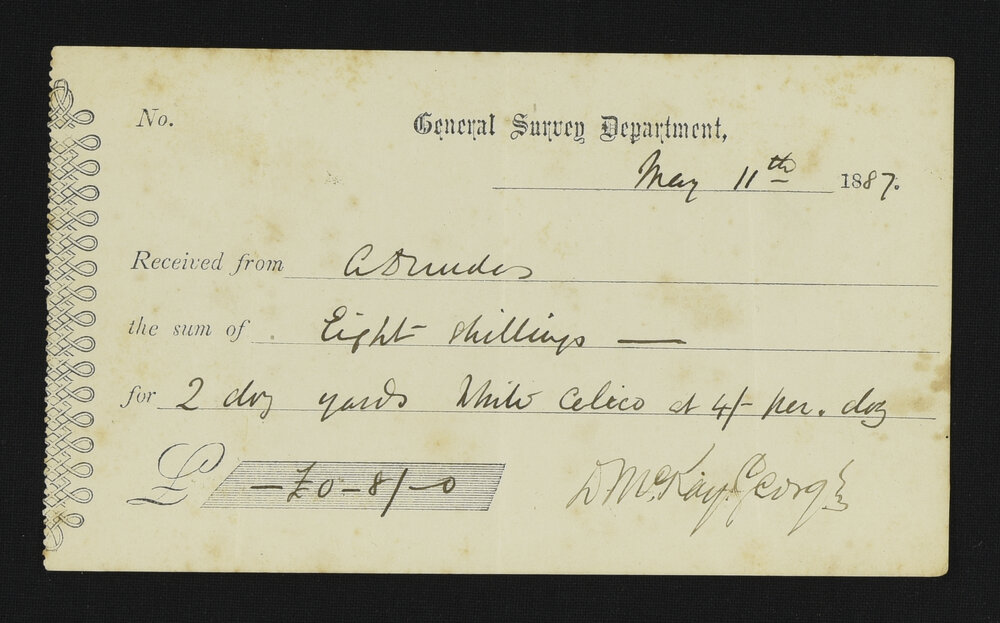 No.
General Survey Department,
May 11th 1887.
Received from
the sum of Eight shillings —
for 2 doz yards White Calico at 4/- per. doz
£ —£0-8/-0
D McKay. Georgtn